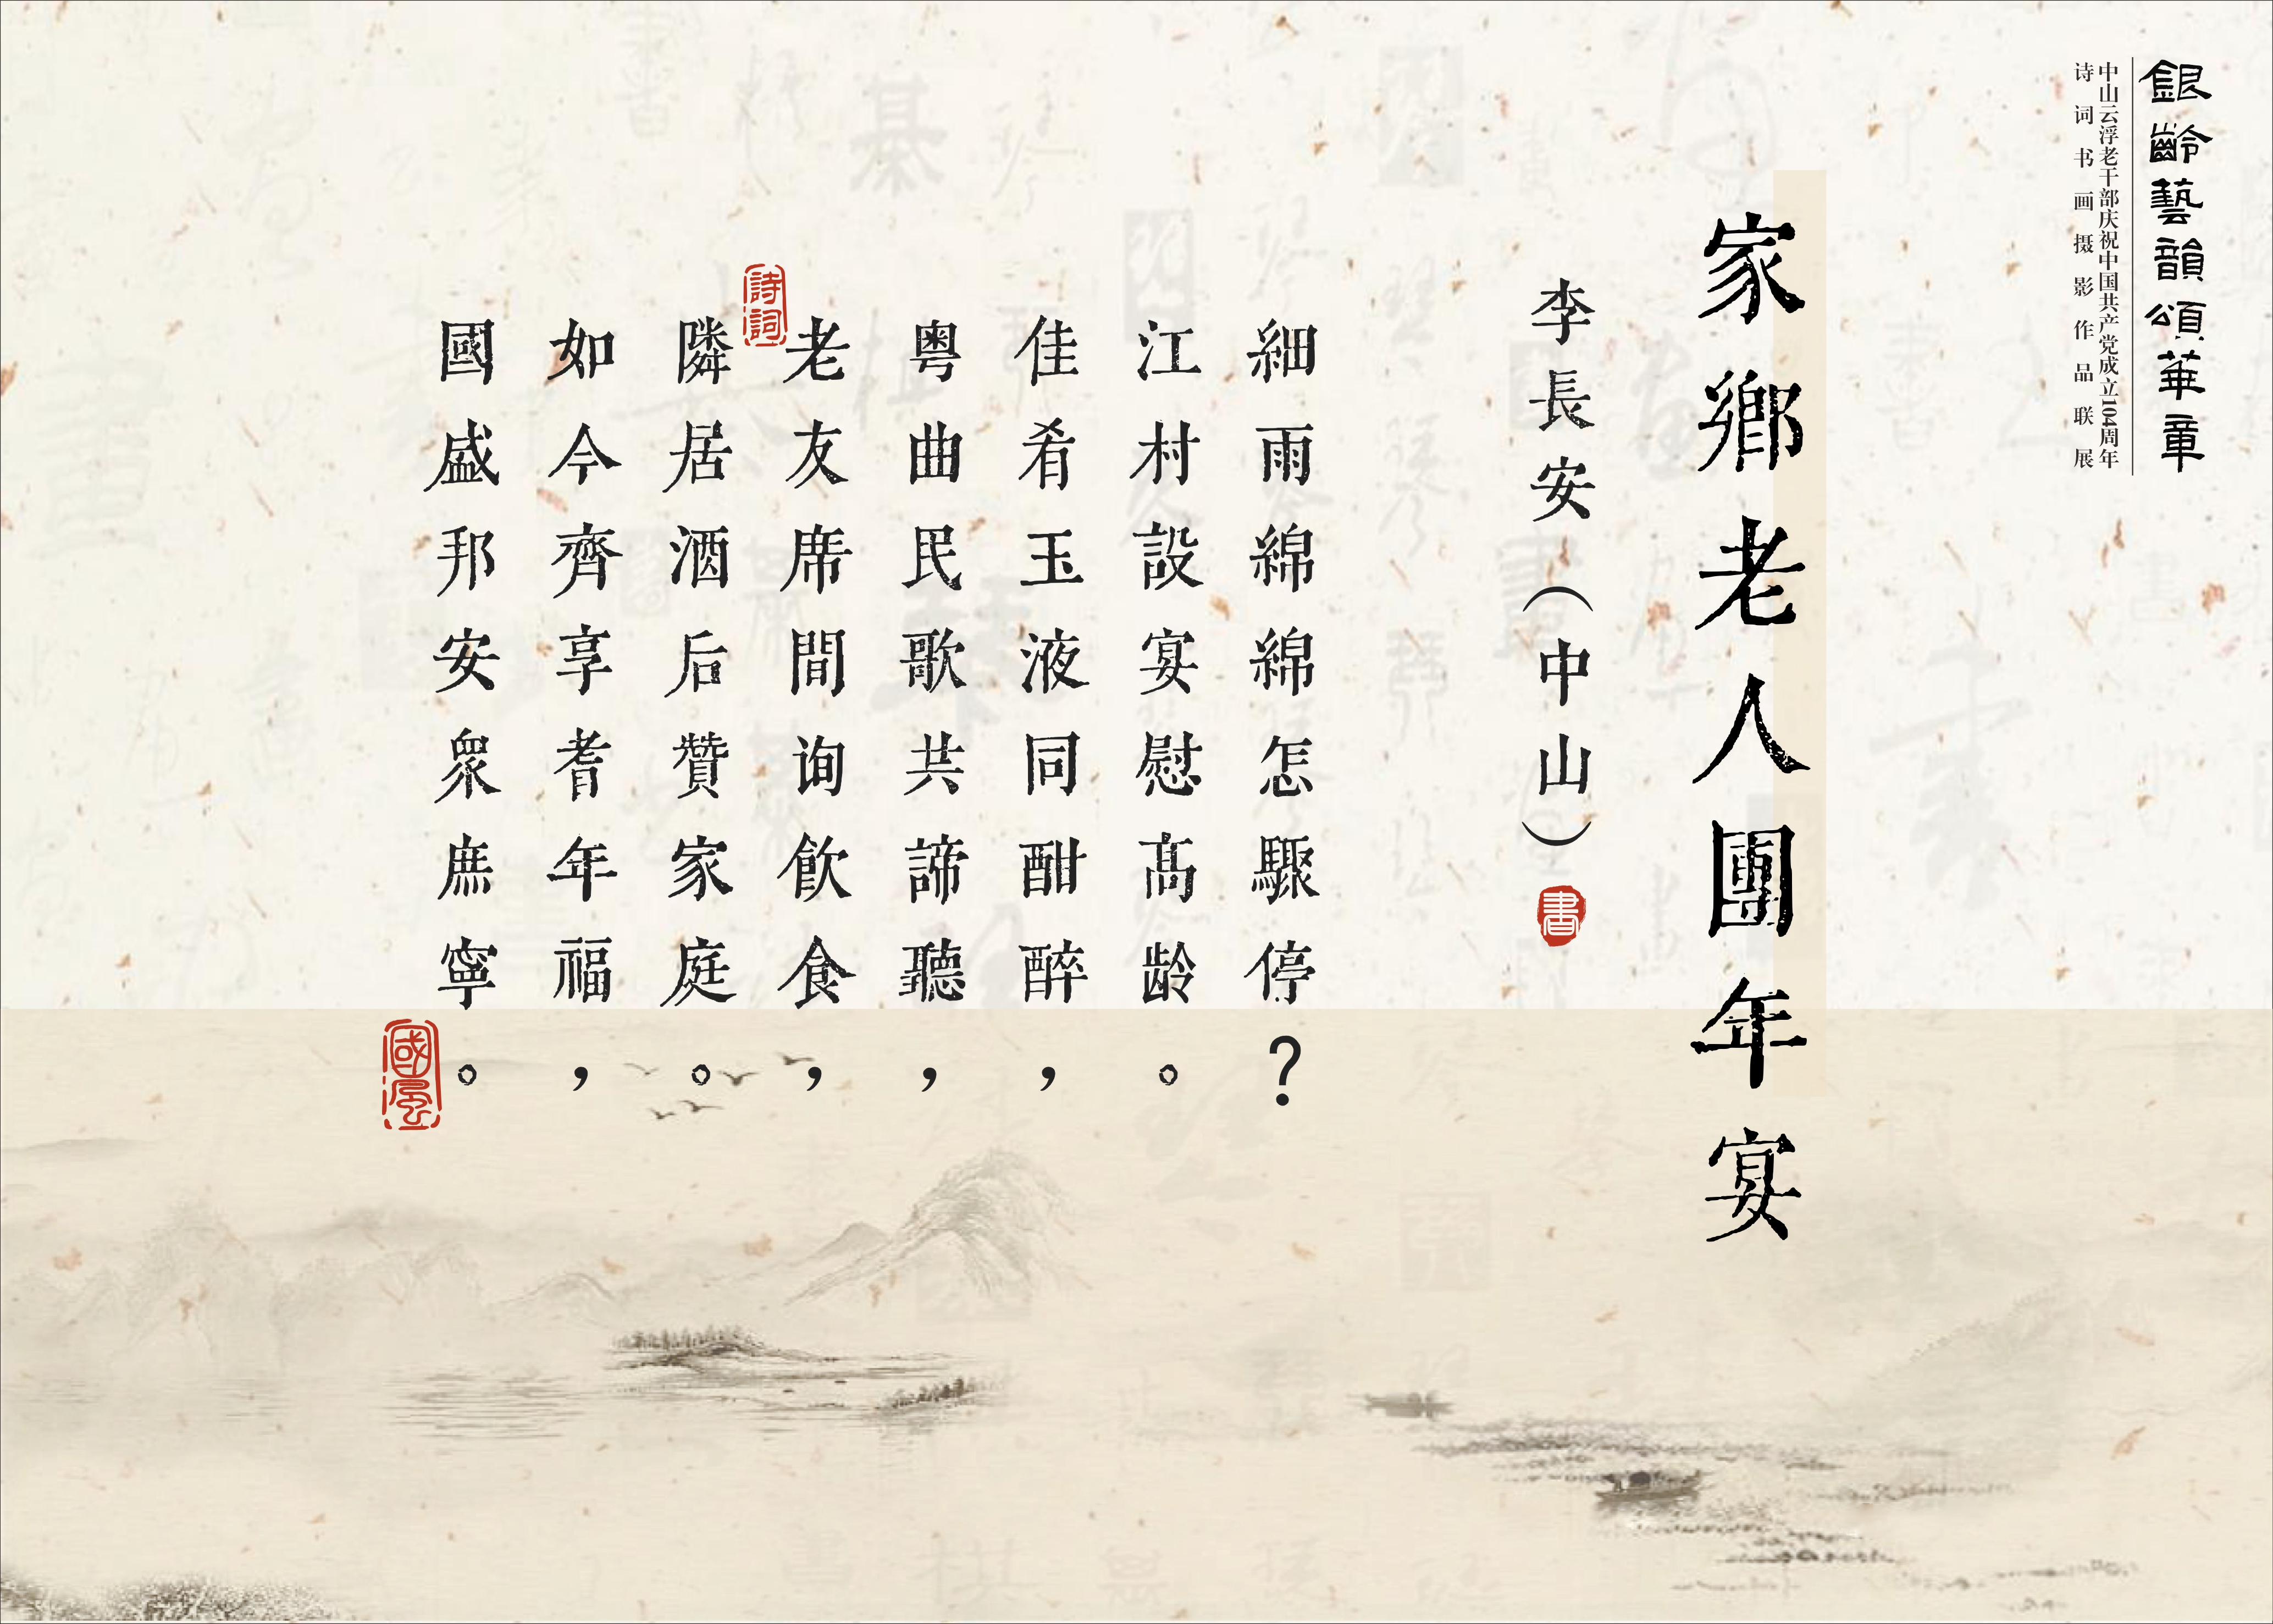 銀齡藝韻頌華章
中山云浮老干部庆祝中国共产党成立104周年
诗词书画摄影作品联展
家鄉老人團年宴
李長安（中山）
書
細雨綿綿怎驟停？
江村設宴慰高龄。
佳肴玉液同酣醉，
粤曲民歌共諦聽，
老友席間询飲食，
詩詞
隣居酒后贊家庭。
如今齊享耆年福，
國盛邦安衆庶寧。
國風